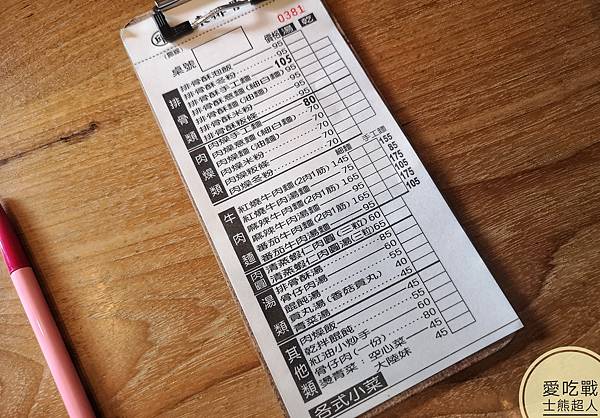 0381
桌號
價格 湯 乾
排骨類
排骨酥泡飯 95
排骨酥冬粉 95
排骨酥手工麵 105
排骨酥意麵(細白麵) 95
排骨酥麵(油麵) 95
排骨酥米粉 95
排骨酥粄條 95
肉燥類
肉燥手工麵 80
肉燥意麵(細白麵) 70
肉燥麵(油麵) 70
肉燥米粉 70
肉燥粄條 70
肉燥冬粉 70
牛肉麵
細麵 手工麵
紅燒牛肉麵(2肉1筋) 145 155
紅燒牛肉湯麵 75 85
麻辣牛肉麵(2肉1筋) 165 175
麻辣牛肉湯麵 95 105
番茄牛肉麵(2肉1筋) 165 175
番茄牛肉湯麵 95 105
肉圓
清蒸蝦仁肉圓(三粒) 60
清蒸蝦仁肉圓湯(三粒) 65
湯類
排骨酥湯 85
骨仔肉湯 55
餛飩湯 40
貢丸湯(香菇貢丸) 40
青菜湯 45
其他類
肉燥飯
乾拌餛飩
紅油小炒手
骨仔肉(一份) 80
燙青菜:空心菜 45
大陸妹 45
各式小菜
愛吃戰
士熊超人